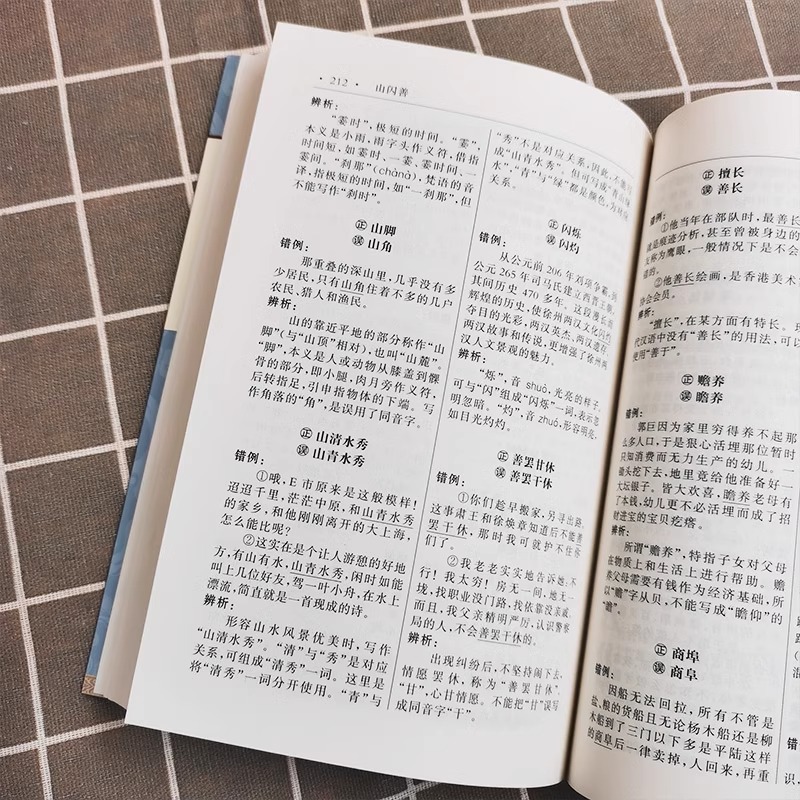 · 212 ·　　山闪善
辨析：
“霎时”，极短的时间。“霎”，
本义是小雨，雨字头作义符，借指
时间短，如霎时、一霎、霎时间、一
霎间。“刹那”（chànà），梵语的音
译，指极短的时间，如“一刹那”，但
不能写作“刹时”。
正 山脚
误 山角
错例：
那重叠的深山里，几乎没有多
少居民，只有山角住着不多的几户
农民、猎人和渔民。
辨析：
山的靠近平地的部分称作“山
脚”（与“山顶”相对），也叫“山麓”。
“脚”，本义是人或动物从膝盖到髁
骨的部分，即小腿，肉月旁作义符，
后转指足，引申指物体的下端。写
作角落的“角”，是误用了同音字。
正 山清水秀
误 山青水秀
错例：
①哦，E市原来是这般模样！
迢迢千里，茫茫中原，和山青水秀
的家乡，和他刚刚离开的大上海，
怎么能比呢？
②这实在是个让人游憩的好地
方，有山有水，山青水秀，闲时如能
叫上几位好友，驾一叶小舟，在水上
漂流，简直就是一首现成的诗。
辨析：
形容山水风景优美时，写作
“山清水秀”。“清”与“秀”是对应
关系，可组成“清秀”一词。这里是
将“清秀”一词分开使用。“青”与
“秀”不是对应关系，因此，不能写
成“山青水秀”。但可写成“青山绿
水”，“青”与“绿”都是颜色，为对应
关系。
正 闪烁
误 闪灼
错例：
从公元前206年刘项争霸，到
公元265年司马氏建立西晋王朝，
其间历史470多年。这段漫长而
辉煌的历史，使徐州两汉文化灼灼
夺目的光彩，两汉英杰、两汉遗存、
两汉故事和传说，更增强了徐州两
汉人文景观的魅力。
辨析：
“烁”，音 shuò，光亮的样子，
可与“闪”组成“闪烁”一词，表示忽
明忽暗。“灼”，音 zhuó，形容明亮，
如目光灼灼。
正 善罢甘休
误 善罢干休
错例：
①你们趁早搬家，另寻出路，
这事肃王和徐焕章知道后不能善
罢干休，那时我可就护不住你
们了。
②我老老实实地告诉她：不
行！我太穷！房无一间，地无一
垅，找职业没门路，找依靠没亲戚，
而且，我父亲精明严厉，认识警察
局的人，不会善罢干休的。
辨析：
出现纠纷后，不坚持闹下去，
情愿罢休，称为“善罢甘休”。
“甘”，心甘情愿。不能把“甘”误写
成同音字“干”。
正 擅长
误 善长
错例：
①他当年在部队时，最善长
就是痕迹分析，甚至曾被身边的
友称为鹰眼，一般情况下是不会
错的。
②他善长绘画，是香港美术
协会会员。
辨析：
“擅长”，在某方面有特长。
代汉语中没有“善长”的用法，可以
使用“善于”。
正 赡养
误 瞻养
错例：
郭巨因为家里穷得养不起那
么多人口，于是狠心活埋那位暂时
只知消费而无力生产的幼儿。一
锄头挖下去，地里竟给他准备好一
大坛银子。皆大欢喜，瞻养老母有
了本钱，幼儿更不必活埋而成了招
财进宝的宝贝疙瘩。
辨析：
所谓“赡养”，特指子女对父母
在物质上和生活上进行帮助。赡
养父母需要有钱作为经济基础，所
以“赡”字从贝，不能写成“瞻仰”的
“瞻”。
正 商埠
误 商阜
错例：
因船无法回拉，所有不管是
盐、粮的货船且无论杨木船还是柳
木船到了三门以下多是平陆这样
的商阜后一律卖掉，人回来，再重